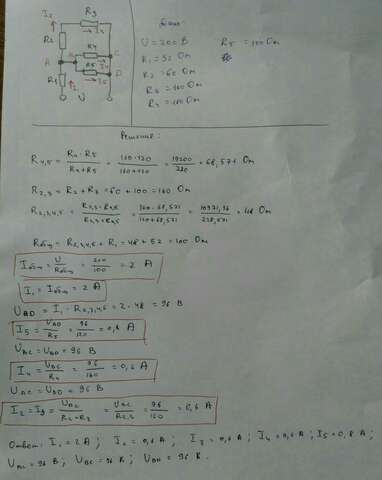 I₂ R₃ I₃
R₂ R₄ C
A B I₄
R₅ D
R₁ I₁ I₅
U
Дано:
U = 200 В R₅ = 120 Ом
R₁ = 52 Ом
R₂ = 60 Ом
R₄ = 160 Ом
R₃ = 100 Ом
Решение:
R₄,₅ = R₄ · R₅ / R₄ + R₅ = 160 · 120 / 160 + 120 = 19200 / 280 = 68,571 Ом
R₂,₃ = R₂ + R₃ = 60 + 100 = 160 Ом
R₂,₃,₄,₅ = R₂,₃ · R₄,₅ / R₂,₃ + R₄,₅ = 160 · 68,571 / 160 + 68,571 = 10971,36 / 228,571 = 48 Ом
Rобщ = R₂,₃,₄,₅ + R₁ = 48 + 52 = 100 Ом
Iобщ = U / Rобщ = 200 / 100 = 2 А
I₁ = Iобщ = 2 А
UBD = I₁ · R₂,₃,₄,₅ = 2 · 48 = 96 В
I₅ = UBD / R₅ = 96 / 120 = 0,8 А
UBC = UBD = 96 В
I₄ = UBC / R₄ = 96 / 160 = 0,6 А
UAC = UBD = 96 В
I₂ = I₃ = UAC / R₂ + R₃ = UAC / R₂,₃ = 96 / 160 = 0,6 А
Ответ: I₁ = 2 А ; I₂ = 0,6 А ; I₃ = 0,6 А ; I₄ = 0,6 А ; I₅ = 0,8 А ;
UAC = 96 В ; UBC = 96 В ; UBD = 96 В .